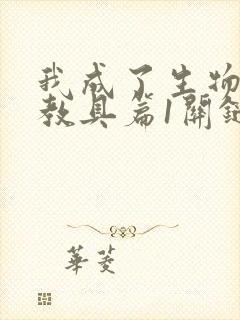 我成了生物
教具篇1開
華菱